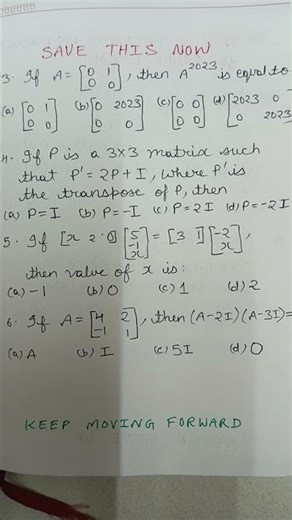 SAVE THIS NOW.
3. If A = [0 1
0 0], then A^2023 is equal to
(a) [0 1
0 0] (b) [0 2023
0 0] (c) [0 0
0 0] (d) [2023 0
0 2023
4. If P is a 3×3 matrix such
that P' = 2P + I, where P' is
the transpose of P, then
(a) P=I (b) P=-I (c) P=2I (d) P=-2I
5. If [x 2 0] [5
-1
x] = [3 1] [-2
x],
then value of x is:
(a) -1 (b) 0 (c) 1 (d) 2
6. If A = [4 2
-1 1], then (A-2I)(A-3I)=
(a) A (b) I (c) 5I (d) O
KEEP MOVING FORWARD